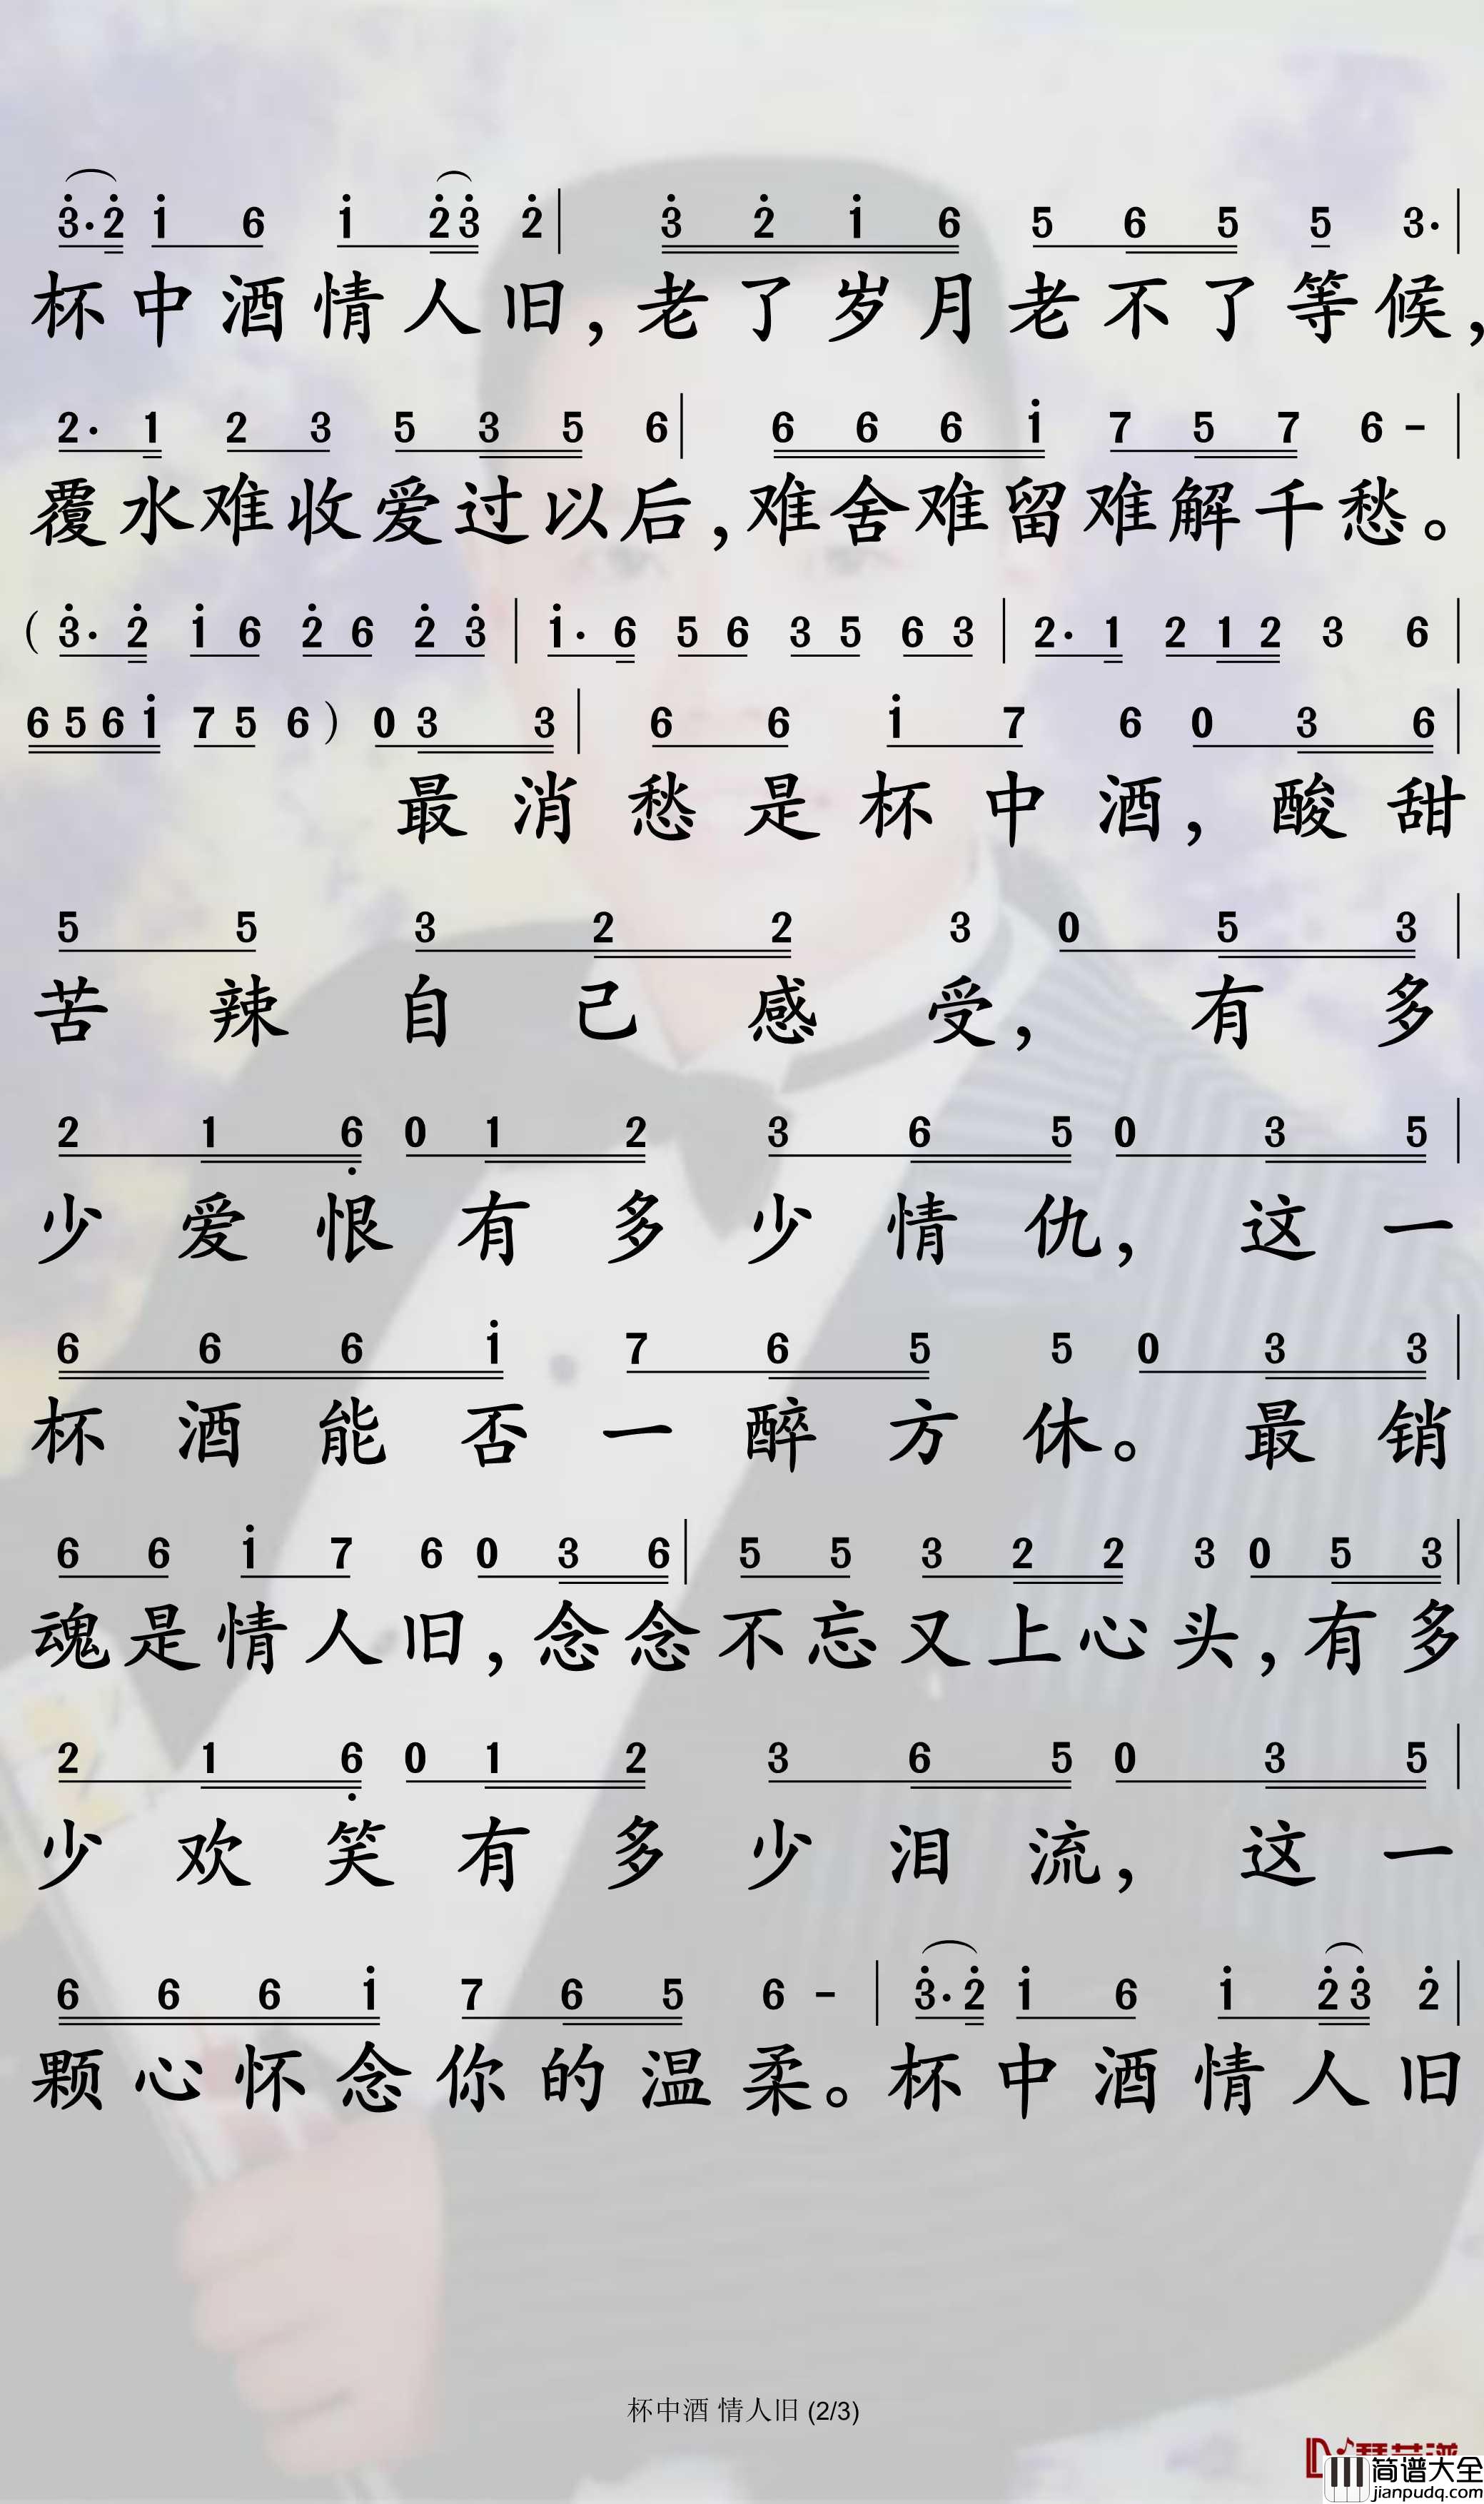 3̇·2̇ 1̇ 6 1̇ 2̇3̇ 2̇| 3̇ 2̇ 1̇ 6 5 6 5 5 3·|
杯中酒情人旧,老了岁月老不了等候,
2· 1 2 3 5 3 5 6| 6 6 6 1̇ 7 5 7 6 -|
覆水难收爱过以后,难舍难留难解千愁。
( 3̇· 2̇ 1̇ 6 2̇ 6 2̇ 3̇| 1̇· 6 5 6 3 5 6 3| 2· 1 2 1 2 3 6|
6 5 6 1̇ 7 5 6 ) 0 3 3| 6 6 1̇ 7 6 0 3 6|
最消愁是杯中酒,酸甜
5 5 3 2 2 3 0 5 3|
苦辣自己感受,有多
2 1 6̣ 0 1 2 3 6 5 0 3 5|
少爱恨有多少情仇,这一
6 6 6 1̇ 7 6 5 5 0 3 3|
杯酒能否一醉方休。最销
6 6 1̇ 7 6 0 3 6| 5 5 3 2 2 3 0 5 3|
魂是情人旧,念念不忘又上心头,有多
2 1 6̣ 0 1 2 3 6 5 0 3 5|
少欢笑有多少泪流,这一
6 6 6 1̇ 7 6 5 6 -| 3̇·2̇ 1̇ 6 1̇ 2̇3̇ 2̇|
颗心怀念你的温柔。杯中酒情人旧
杯中酒 情人旧 (2/3)
简谱大全
jianpudq.com